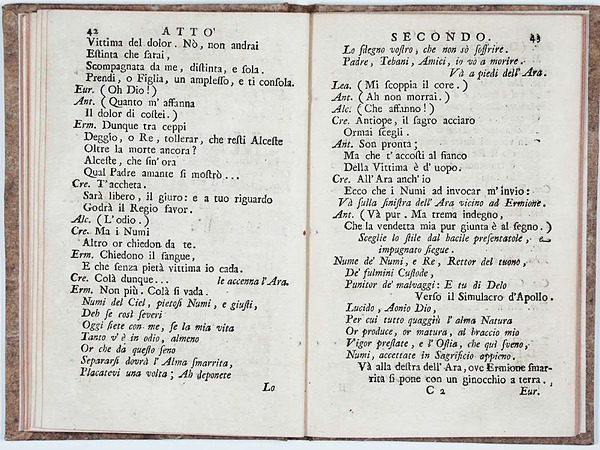 42 ATTO'
Vittima del dolor. Nò, non andrai
Eſtinta che ſarai,
Scompagnata da me, diſtinta, e ſola.
Prendi, o Figlia, un ampleſſo, e ti conſola.
Eur. (Oh Dio!)
Ant. (Quanto m' affanna
Il dolor di coſtei.)
Erm. Dunque tra ceppi
Deggio, o Re, tollerar, che reſti Alceſte
Oltre la morte ancora?
Alceſte, che ſin' ora
Qual Padre amante ſi moſtrò...
Cre. T'accheta.
Sarà libero, il giuro: e a tuo riguardo
Godrà il Regio favor.
Alc. (L'odio.)
Cre. Ma i Numi
Altro or chiedon da te.
Erm. Chiedono il ſangue,
E che ſenza pietà vittima io cada.
Cre. Colà dunque... le accenna l'Ara.
Erm. Non più. Colà ſi vada.
Numi del Ciel, pietoſi Numi, e giuſti,
Deh ſe così ſeveri
Oggi ſiete con me, ſe la mia vita
Tanto v' è in odio, almeno
Or che da queſto ſeno
Separarſi dovrà l' Alma ſmarrita,
Placatevi una volta; Ah deponete
Lo
SECONDO. 43
Lo ſdegno voſtro, che non sò ſoffrire.
Padre, Tebani, Amici, io vò a morire.
Và a piedi dell' Ara.
Lea. (Mi ſcoppia il core.)
Ant. (Ah non morrai.)
Alc. (Che affanno!)
Cre. Antiope, il ſagro acciaro
Ormai ſcegli.
Ant. Son pronta;
Ma che t' accoſti al fianco
Della Vittima è d' uopo.
Cre. All' Ara anch' io
Ecco che i Numi ad invocar m' invio:
Và ſulla ſiniſtra dell' Ara vicino ad Ermione.
Ant. (Và pur. Ma trema indegno,
Che la vendetta mia pur giunta è al ſegno.)
Sceglie lo ſtile dal bacile preſentatole, e
impugnato ſiegue.
Nume de' Numi, e Re, Rettor del tuono,
De' fulmini Cuſtode,
Punitor de' malvaggi: E tu di Delo
Verſo il Simulacro d'Apollo.
Lucido, Aonio Dio,
Per cui tutto quaggiù l' alma Natura
Or produce, or matura, al braccio mio
Vigor preſtate, e l' Oſtia, che quì ſveno,
Numi, accettate in Sagrificio appieno.
Và alla deſtra dell' Ara, ove Ermione ſmar-
rita ſi pone con un ginocchio a terra.
C 2 Eur.